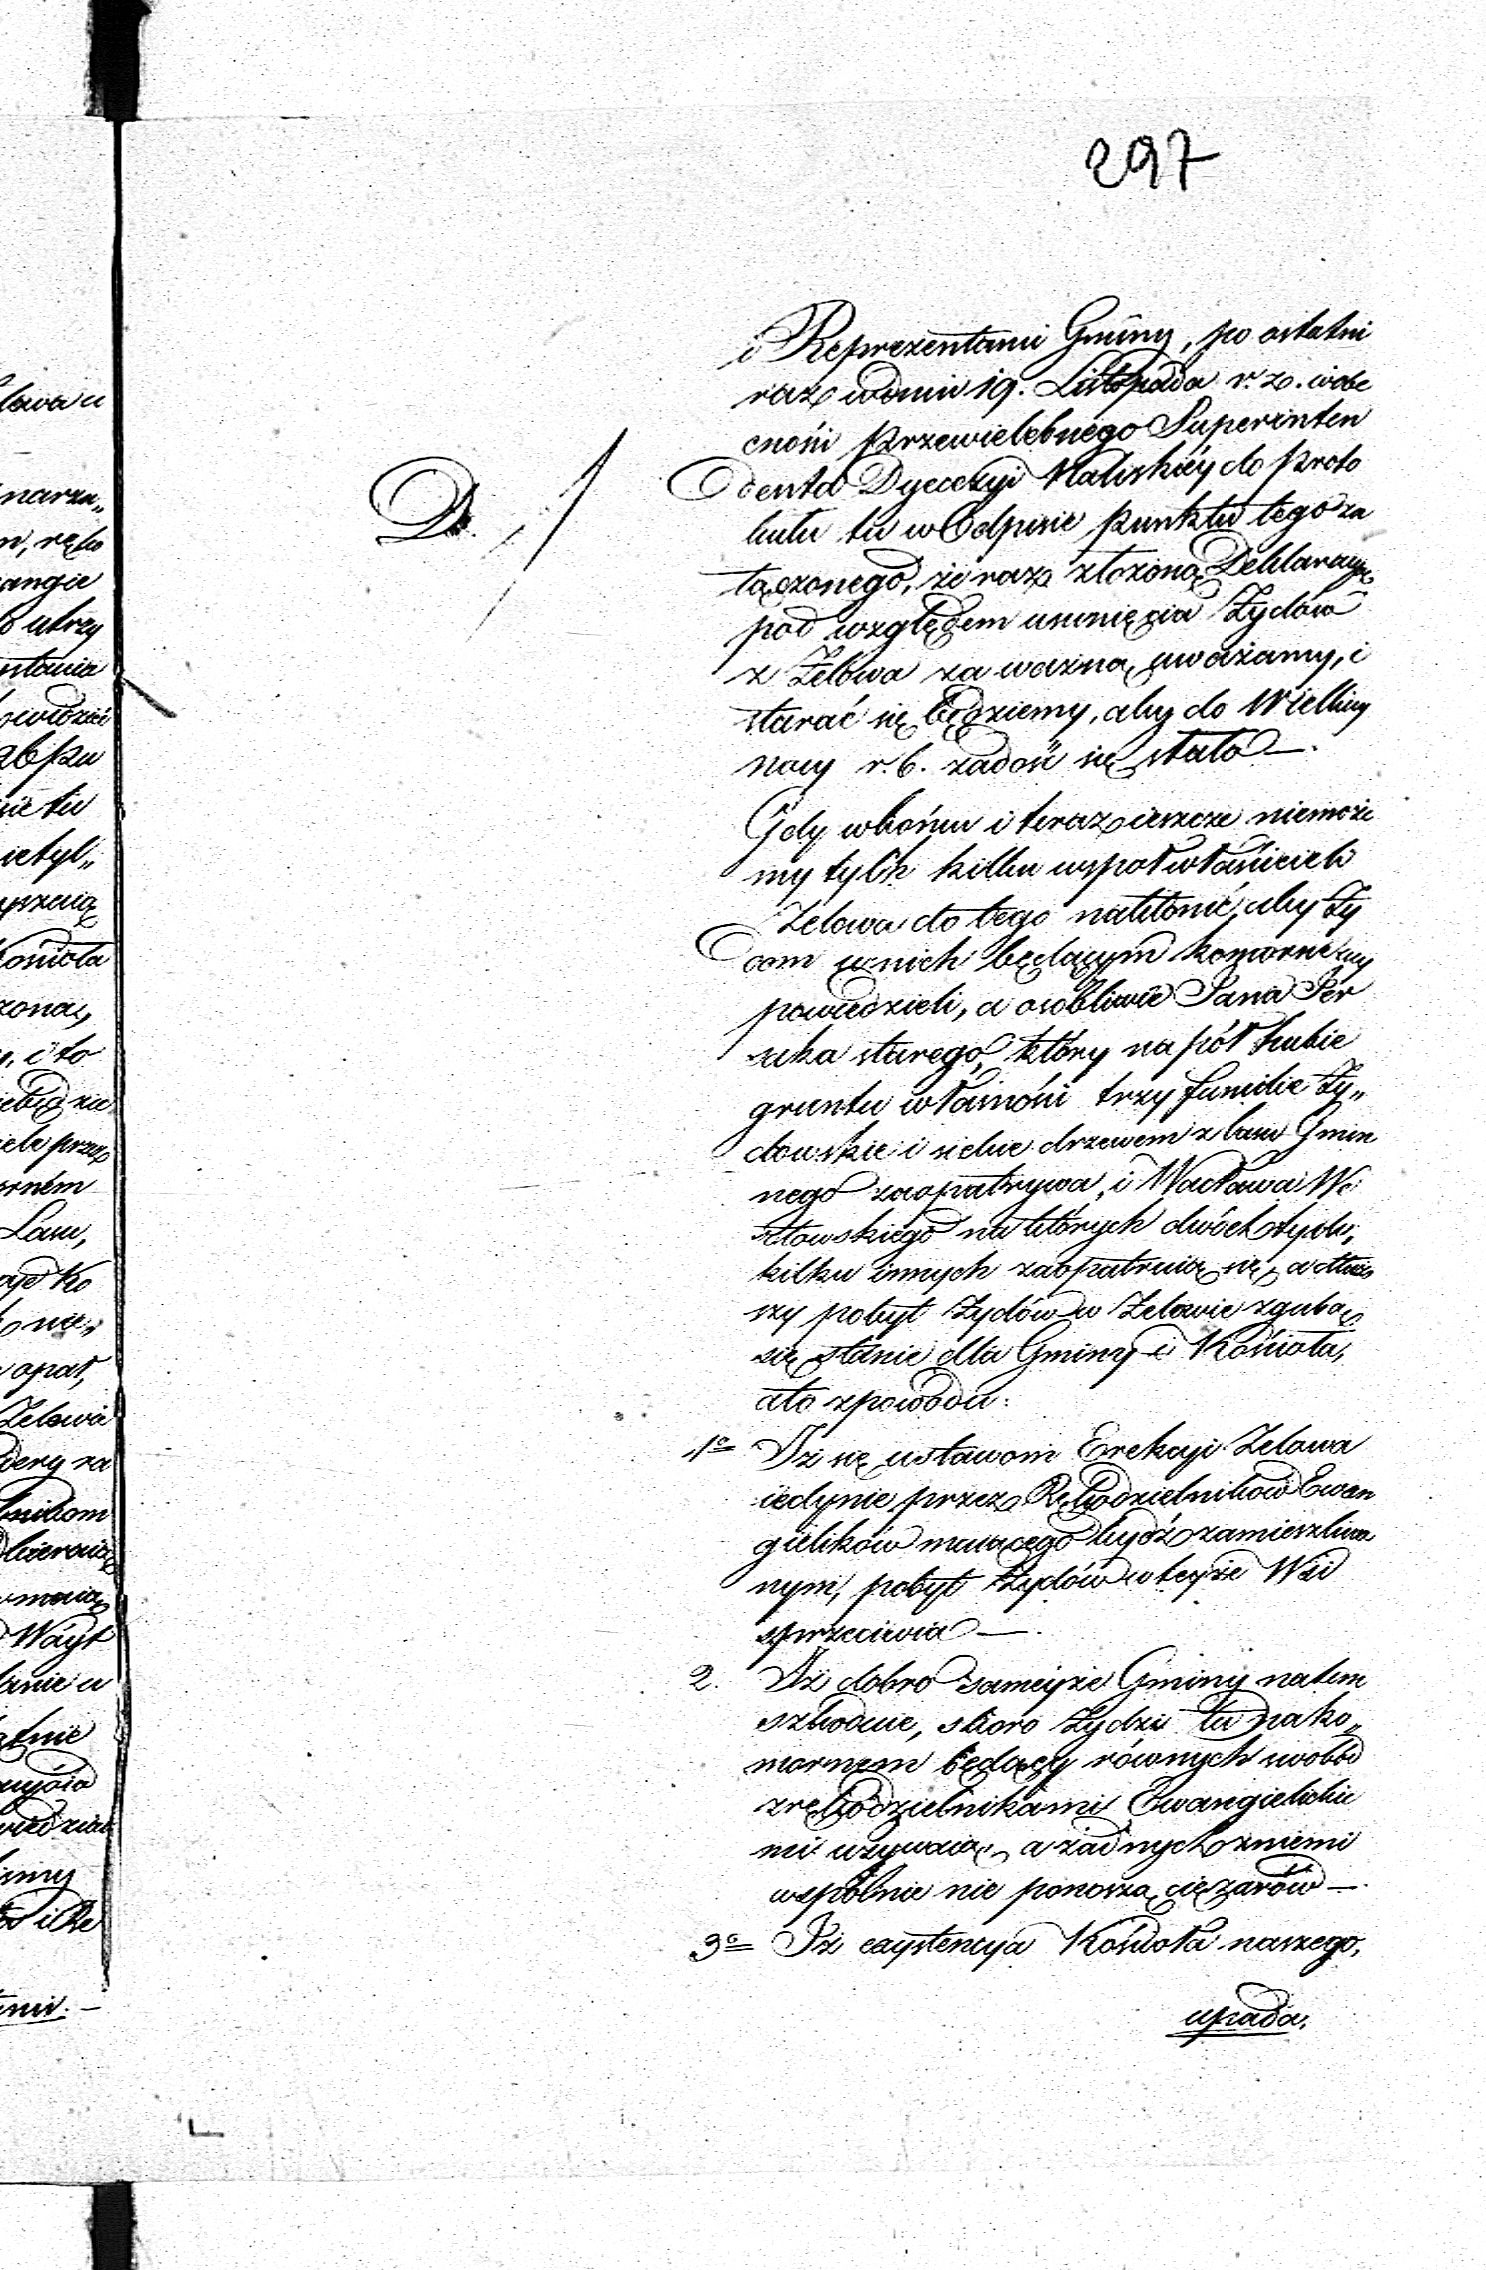 297
i Reprezentanci Gminy, po ostatni
raz w dniu 19. Listopada r. z. w obe
cności Przewielebnego Superinten
denta Dyecezyi Kaliskiéy do Proto
kułu tu w Odpisie punktu tego za
łączonego, że raz złożoną Deklaracyę
pod względem usunięcia Żydów
z Zelowa za ważną uważamy, i
starać się będziemy, aby do Wielkiey
nocy r. b. zadość się stało —.
D.
Gdy w końcu i teraz ieszcze niemoże
my tylko kilku współwłaścicieli
Zelowa do tego nakłonić, aby Ży
dom u nich będącym komorne wy
powiedzieli, a osobliwie Pana Per
starego, który na pół hubie
gruntu własności trzy familie Ży„
dowskie i siebie drzewem z lasu Gmin
nego zaopatrywa, i Wacława
na których dwóch tych,
kilku innych zaopatruią się, a dłuż
szy pobyt Żydów w Zelowie zgubą
się stanie dla Gminy i Kościoła,
a to z powodu:
1e Iż się ustawom Erekcyi Zelowa
iedynie przez Rękodzielników Ewan
gielików maiącego bydź zamieszkiwa
nym, pobyt Żydów w teyże Wsi
sprzeciwia —.
2. Iż dobro saméyże Gminy na tem
szkoduie, skoro Żydzi tu na ko„
mornem będący równych swobód
z rękodzielnikami Ewangielickie
mi używaią, a żadnych z niemi
wspólnie nie ponoszą ciężarów —.
3e Iż exystencya Kościoła naszego,
upada.